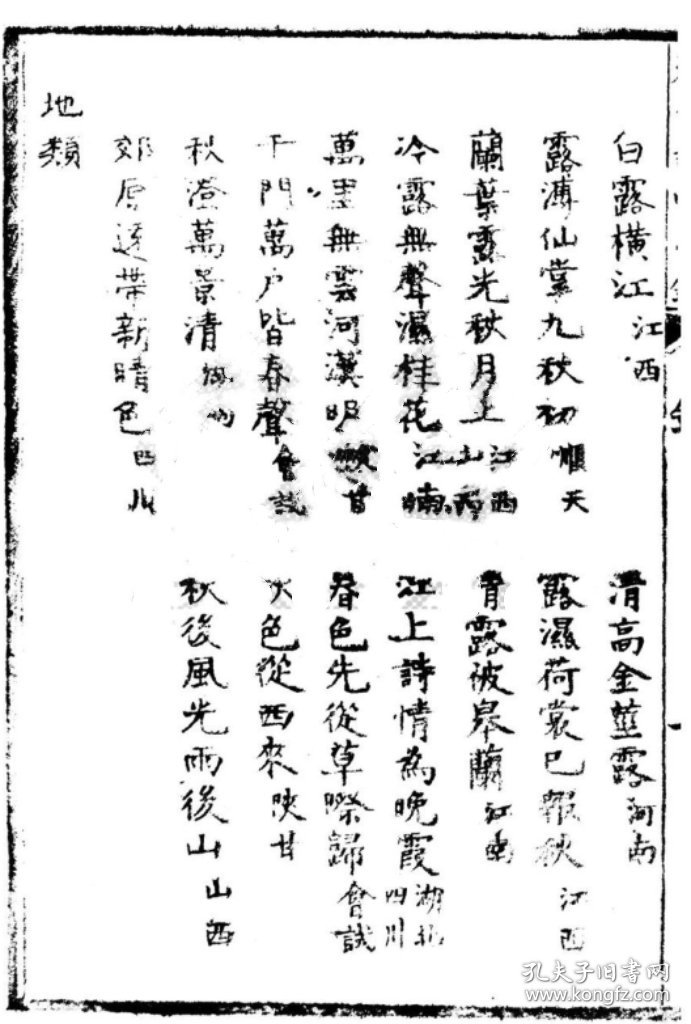 白露橫江 江西
清高金莖露 河南
露溥仙掌九秋初 順天
露濕荷裳已報秋 江西
蘭葉露光秋月上 江西 山西
青露被皋蘭 江南
冷露無聲濕桂花 江南
江上詩情為晚霞 湖北 四川
萬里無雲河漢明 陝甘
春色先從草際歸 會試
千門萬户皆春聲 會試
色從西來 陝甘
秋澄萬景清
秋後風光雨後山 山西
郊原遠帶新晴色 四川
地類
孔夫子旧书网
www.kongfz.com